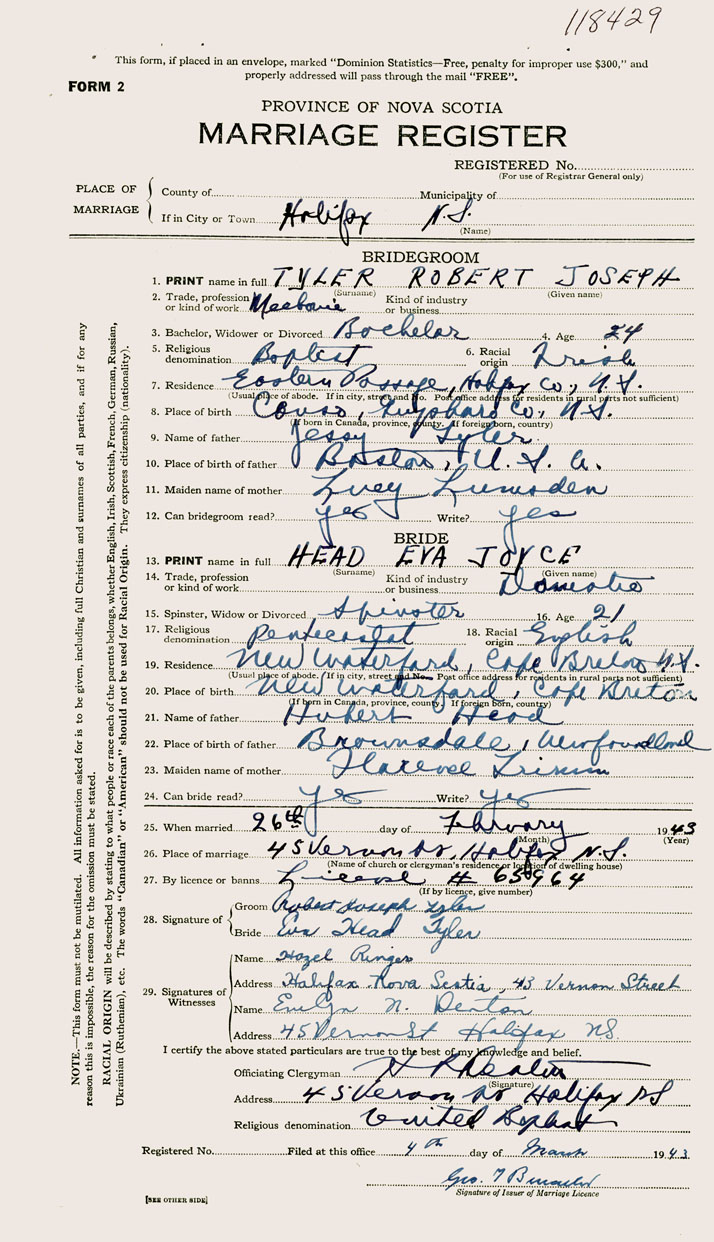 118429
This form, if placed in an envelope, marked "Dominion Statistics—Free, penalty for improper use $300," and
properly addressed will pass through the mail "FREE".
FORM 2
PROVINCE OF NOVA SCOTIA
MARRIAGE REGISTER
REGISTERED No.
(For use of Registrar General only)
PLACE OF MARRIAGE
County of Municipality of
If in City or Town Halifax N.S.
(Name)
BRIDEGROOM
1. PRINT name in full TYLER ROBERT JOSEPH
(Surname) (Given name)
2. Trade, profession or kind of work Mechanic Kind of industry or business
3. Bachelor, Widower or Divorced Bachelor 4. Age 24
5. Religious denomination Baptist 6. Racial origin Irish
7. Residence Eastern Passage, Halifax Co., N.S.
(Usual place of abode. If in city, street and No. Post office address for residents in rural parts not sufficient)
8. Place of birth Canso, Guysboro Co., N.S.
(If born in Canada, province, county. If foreign born, country)
9. Name of father Jessy Tyler
10. Place of birth of father Boston, U.S.A.
11. Maiden name of mother Lucy Lumsden
12. Can bridegroom read? yes Write? yes
BRIDE
13. PRINT name in full HEAD EVA JOYCE
(Surname) (Given name)
14. Trade, profession or kind of work Kind of industry or business Domestic
15. Spinster, Widow or Divorced Spinster 16. Age 21
17. Religious denomination Pentecostal 18. Racial origin English
19. Residence New Waterford, Cape Breton N.S.
(Usual place of abode. If in city, street and No. Post office address for residents in rural parts not sufficient)
20. Place of birth New Waterford, Cape Breton
(If born in Canada, province, county. If foreign born, country)
21. Name of father Hubert Head
22. Place of birth of father Brownsdale, Newfoundland
23. Maiden name of mother Florence
24. Can bride read? yes Write? yes
25. When married 26th day of February 1943
(Month) (Year)
26. Place of marriage 45 Vernon St, Halifax N.S.
(Name of church or clergyman's residence or location of dwelling house)
27. By licence or banns License # 65964
(If by licence, give number)
28. Signature of
Groom Robert Joseph Tyler
Bride Eva Head Tyler
29. Signatures of Witnesses
Name Hazel Ringer
Address Halifax Nova Scotia, 43 Vernon Street
Name Evelyn N. Denton
Address 45 Vernon St Halifax NS.
I certify the above stated particulars are true to the best of my knowledge and belief.
Officiating Clergyman
(Signature)
Address 45 Vernon St Halifax NS
Religious denomination United Baptist
Registered No. Filed at this office 4th day of March 1943
Geo. T
Signature of Issuer of Marriage Licence
[SEE OTHER SIDE]
NOTE.—This form must not be mutilated. All information asked for is to be given, including full Christian and surnames of all parties, and if for any
reason this is impossible, the reason for the omission must be stated.
RACIAL ORIGIN will be described by stating to what people or race each of the parents belongs, whether English, Irish, Scottish, French, German, Russian,
Ukrainian (Ruthenian), etc. The words "Canadian" or "American" should not be used for Racial Origin. They express citizenship (nationality).